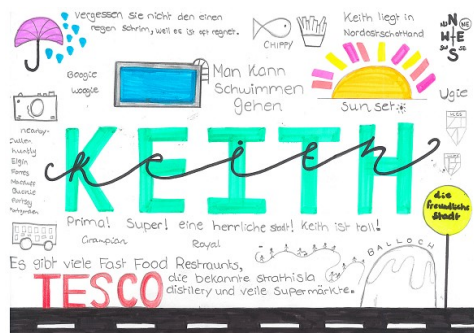 vergessen sie nicht den einen
regen schrim, weil es ist oft regnet.
CHIPPY
Keith liegt in
Nordostschottland
N
NE
W E
SW SE
S
Boogie
woogie
Man Kann
Schwimmen
gehen
Sun set
Ugie
nearby-
Cullen
Huntly
Elgin
Forres
Portsoy
KEITH
keith
die
freundliche
Stadt
Prima! Super! eine herrliche stadt! Keith ist toll!
Grampian
Royal
BALLOCH
Es gibt viele Fast Food Restraunts,
TESCO
die bekannte strathisla
distillery und veile Supermärkte.